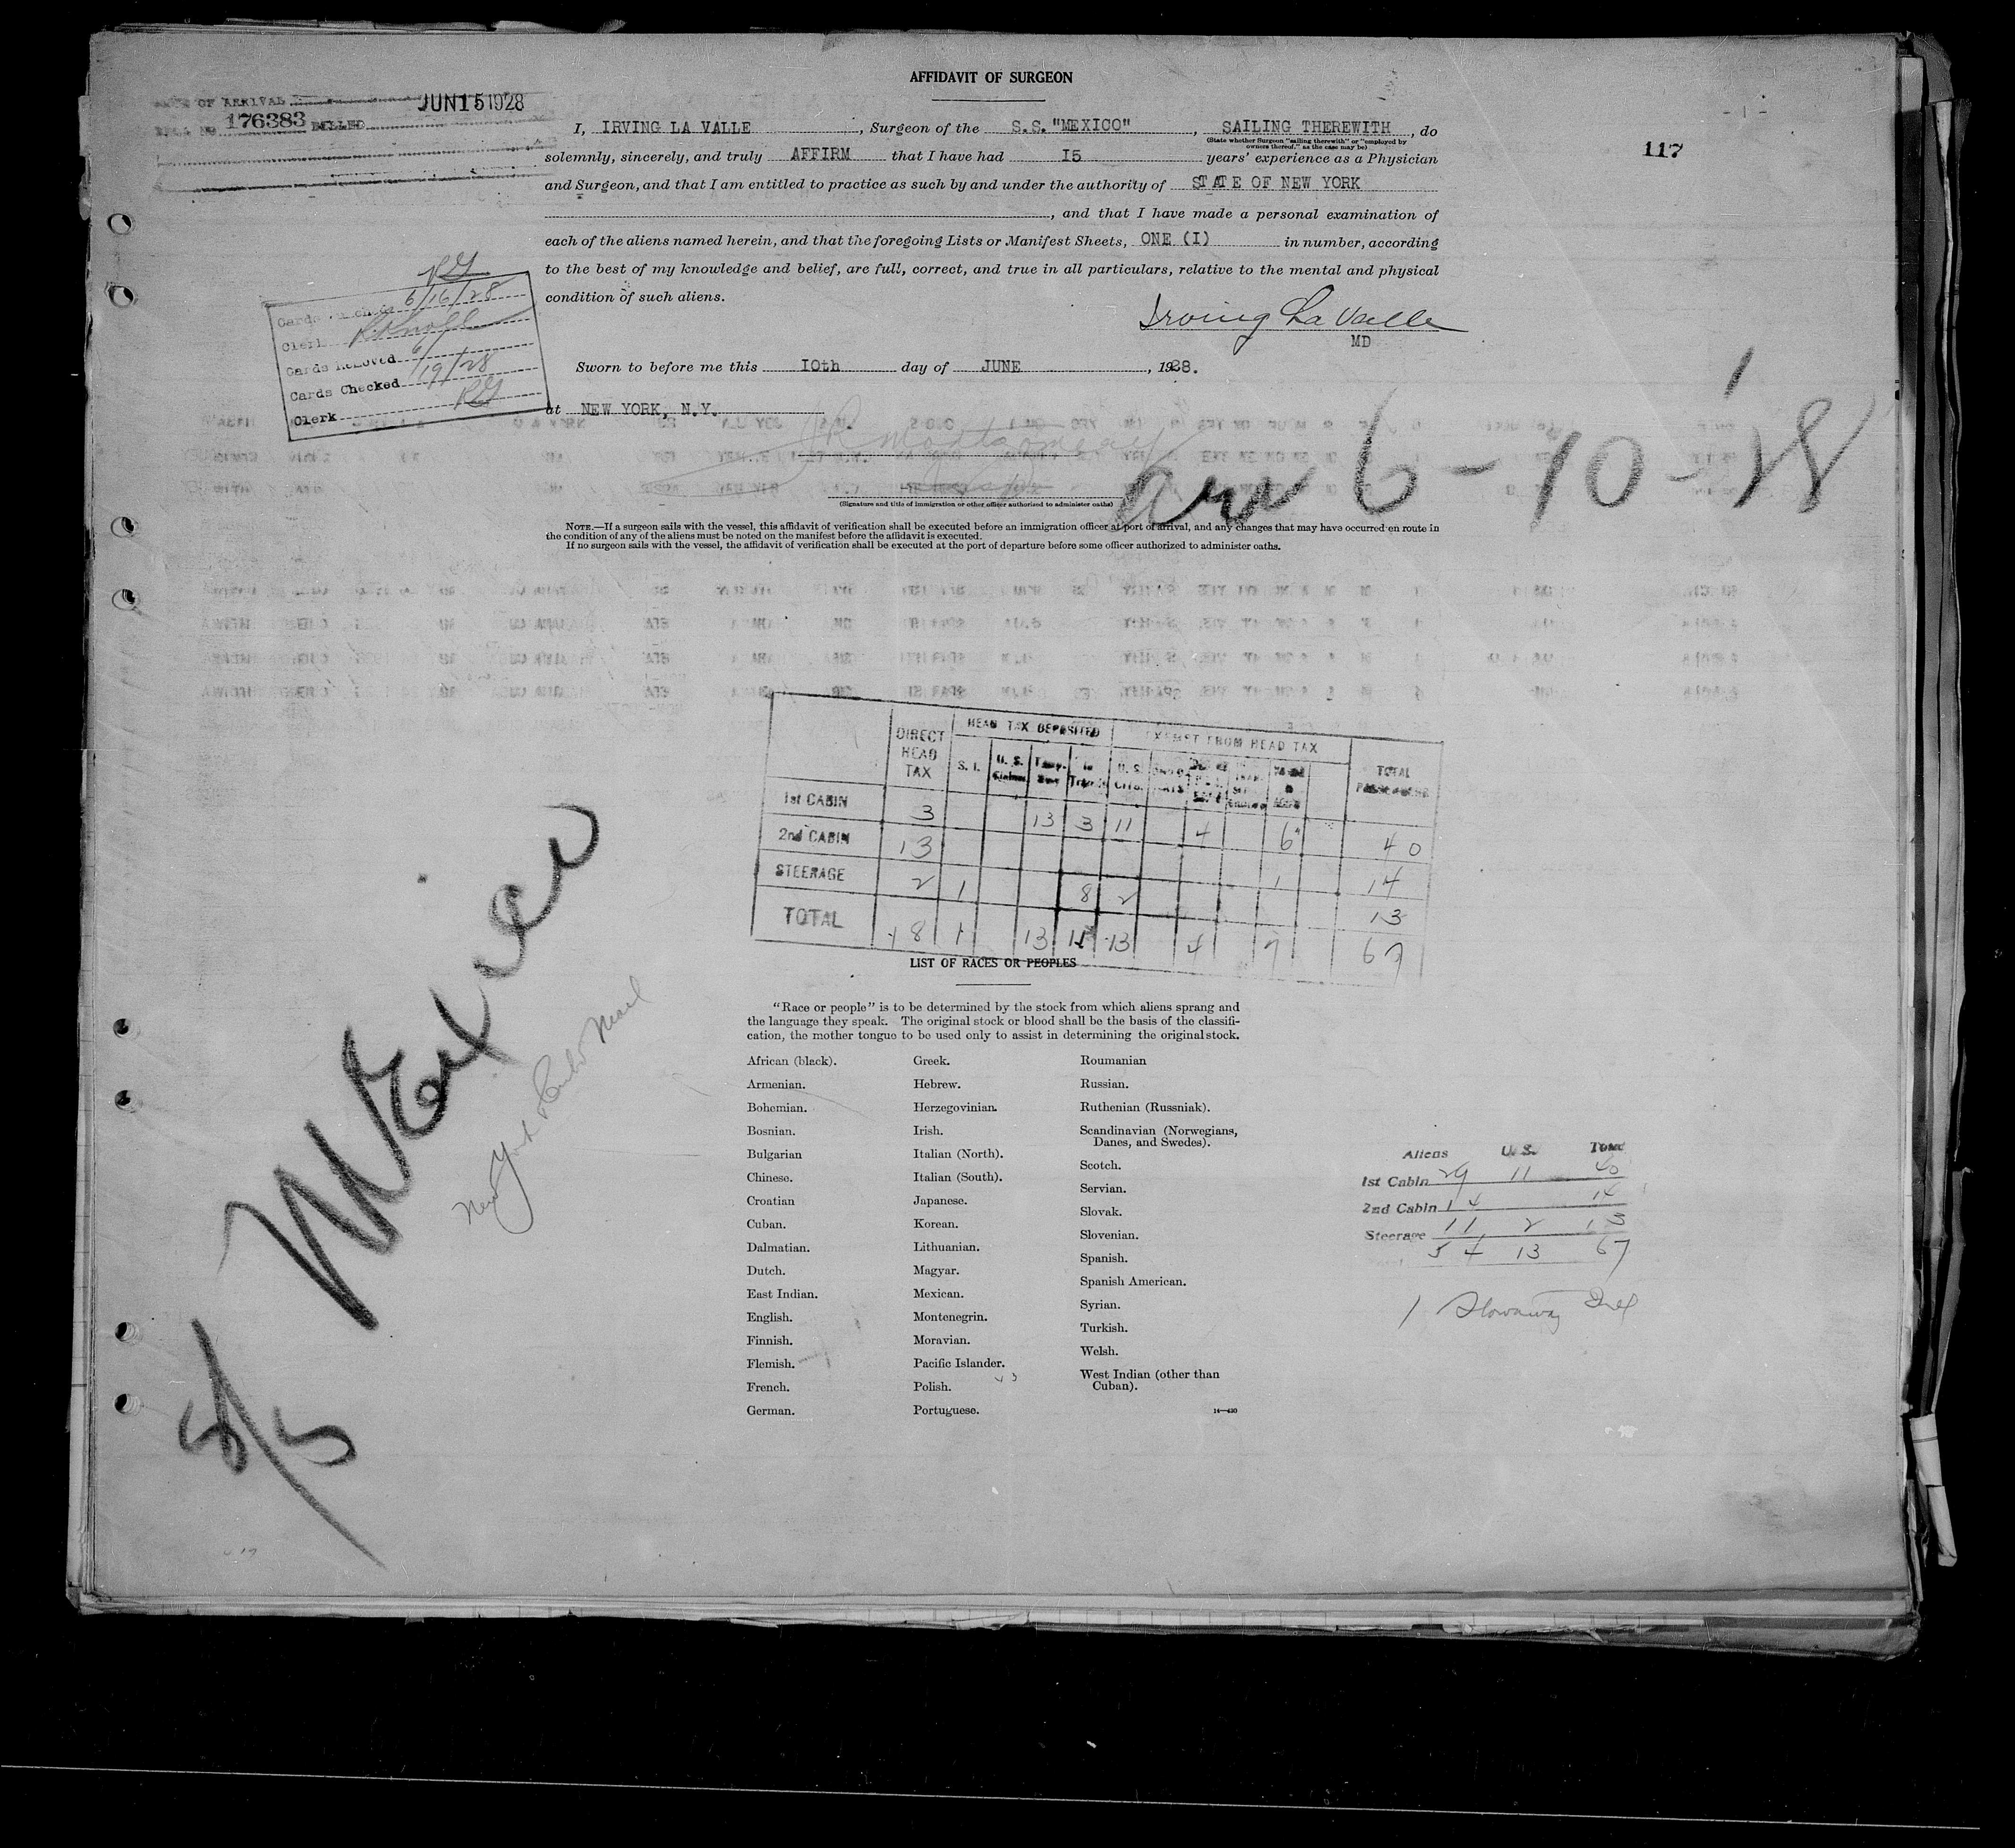 AFFIDAVIT OF SURGEON
OF ARRIVAL JUN 15 1928
176383 BILLED
117
I, IRVING LA VALLE, Surgeon of the S.S."MEXICO", SAILING THEREWITH, do
(State whether Surgeon "sailing therewith" or "employed by
owners thereof," as the case may be)
solemnly, sincerely, and truly AFFIRM that I have had I5 years' experience as a Physician
and Surgeon, and that I am entitled to practice as such by and under the authority of STATE OF NEW YORK
, and that I have made a personal examination of
each of the aliens named herein, and that the foregoing Lists or Manifest Sheets, ONE (I) in number, according
to the best of my knowledge and belief, are full, correct, and true in all particulars, relative to the mental and physical
condition of such aliens.
Irving La Valle
MD
RG
Cards 6/16/28
Clerk
Cards Removed 6/
Cards Checked 19/28
Clerk RG
Sworn to before me this IOth day of JUNE, 1928.
at NEW YORK, N.Y.
Montgomery
arr 6-10-28
(Signature and title of immigration or other officer authorized to administer oaths)
NOTE.—If a surgeon sails with the vessel, this affidavit of verification shall be executed before an immigration officer at port of arrival, and any changes that may have occurred en route in
the condition of any of the aliens must be noted on the manifest before the affidavit is executed.
If no surgeon sails with the vessel, the affidavit of verification shall be executed at the port of departure before some officer authorized to administer oaths.
DIRECT HEAD TAX HEAD TAX DEPOSITED EXEMPT FROM HEAD TAX TOTAL PASSENGERS
S. I. U. S. In Transit U. S. Cits.
1st CABIN 3 13 3 11 4 6 40
2nd CABIN 13 1 14
STEERAGE 2 1 8 2 13
TOTAL 18 1 13 11 13 4 7 67
LIST OF RACES OR PEOPLES
"Race or people" is to be determined by the stock from which aliens sprang and
the language they speak. The original stock or blood shall be the basis of the classifi-
cation, the mother tongue to be used only to assist in determining the original stock.
African (black).
Armenian.
Bohemian.
Bosnian.
Bulgarian
Chinese.
Croatian
Cuban.
Dalmatian.
Dutch.
East Indian.
English.
Finnish.
Flemish.
French.
German.
Greek.
Hebrew.
Herzegovinian.
Irish.
Italian (North).
Italian (South).
Japanese.
Korean.
Lithuanian.
Magyar.
Mexican.
Montenegrin.
Moravian.
Pacific Islander.
Polish.
Portuguese.
Roumanian
Russian.
Ruthenian (Russniak).
Scandinavian (Norwegians,
Danes, and Swedes).
Scotch.
Servian.
Slovak.
Slovenian.
Spanish.
Spanish American.
Syrian.
Turkish.
Welsh.
West Indian (other than
Cuban).
14—430
Aliens U. S. Total
1st Cabin 29 11 40
2nd Cabin 14 14
Steerage 11 2 13
54 13 67
1 Stowaway
S/S Mexico
New York & Cuba Mail